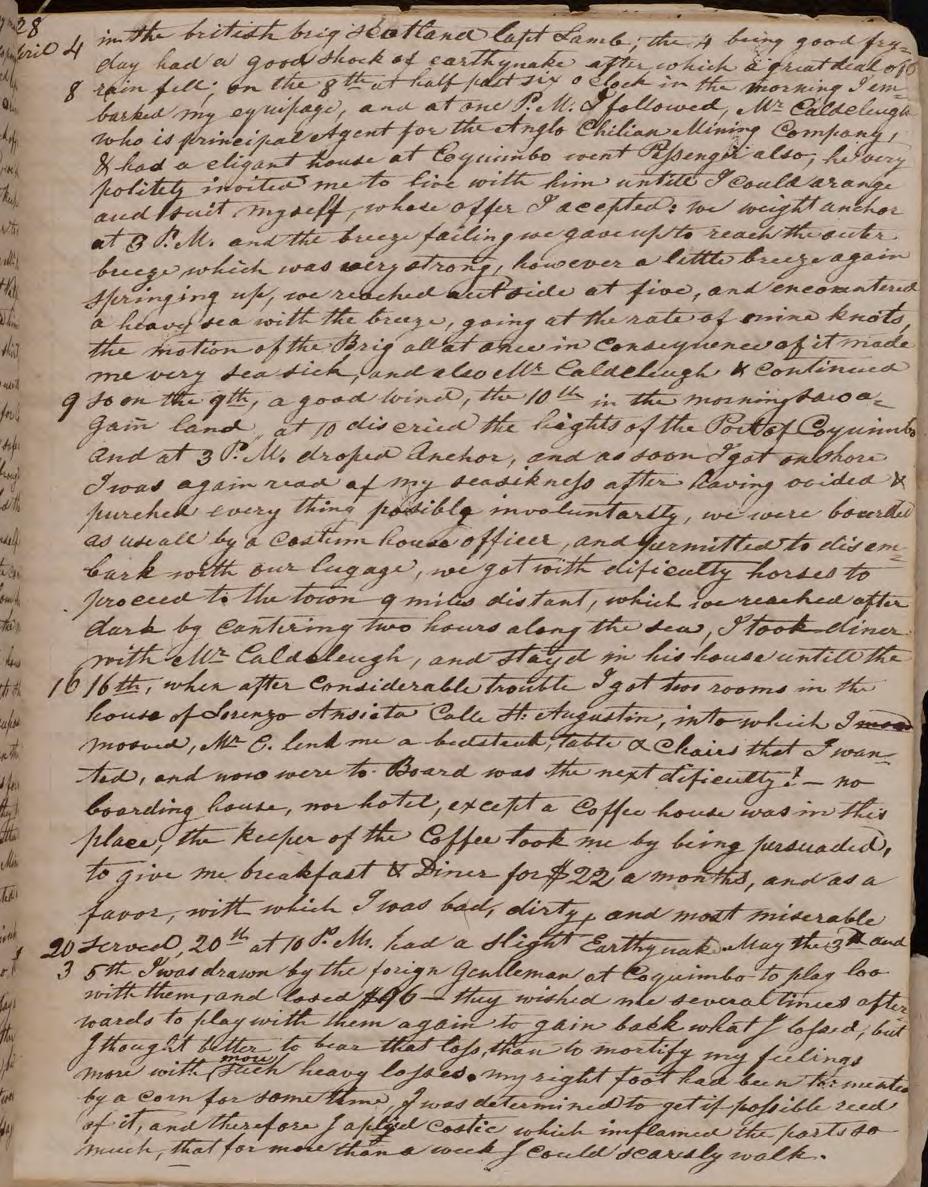 28
April 4 in the british brig Scotland capt Lamb; the 4 being good fry=
day had a good shock of earthquake after which a great deal of
8 rain fell; on the 8th at half past six o clock in the morning I em=
barked my equipage, and at one P.M. I followed, Mr Caldcleugh
who is principal Agent for the Anglo Chilian Mining Company,
& had a eligant house at Coquimbo went Passenger also, he very
politely invited me to live with him untill I could arange
and suit myself, whose offer I acepted: we weight anchor
at 3 P.M. and the breeze failing we gave up to reach the outer
breeze which was very strong, however a little breeze again
springing up, we reached out side at five, and encountered
a heavy sea with the breeze, going at the rate of nine knots,
the motion of the Brig all at once in consequence of it made
me very sea sick, and also Mr Caldcleugh & continued
9 so on the 9th, a good wind, the 10th in the morning saw a=
gain land, at 10 discried the hights of the Port of Coquimbo
and at 3 P.M. droped Anchor, and as soon I got on shore
I was again read of my seasikness after having voided &
purched every thing posible involuntarly, we were boarded
as useall by a costum house officer, and permitted to disem=
bark with our lugage, we got with dificulty horses to
proceed to the town 9 miles distant, which we reached after
dark by cantering two hours along the sea, I took diner
with Mr Caldcleugh, and stayd in his house untill the
16 16th, when after considerable trouble I got two rooms in the
house of Lorenzo Ansieta Calle St. Augustin, into which I
mooved, Mr C. lent me a bedsteed, table & Chairs that I wan=
ted, and now were to Board was the next dificulty! – no
boarding house, nor hotel, except a Coffee house was in this
place, the keeper of the Coffee took me by being persuaded,
to give me breakfast & Diner for $22 a months, and as a
favor, with which I was bad, dirty, and most miserable
20 served, 20th at 10 P.M. had a slight Earthquak May the 3d and
3 5th I was drawn by the forign Gentleman at Coquimbo to play loo
with them, and losed $96 – they wished me several times after
wards to play with them again to gain back what I lossed, but
I thought better to bear that loss, than to mortify my feelings
more with more such heavy losses. my right foot had been tormented
by a corn for some time, I was determined to get if possible reed
of it, and therefore I aplyed Costic which imflamed the parts so
much, that for more than a week I could scaresly walk.